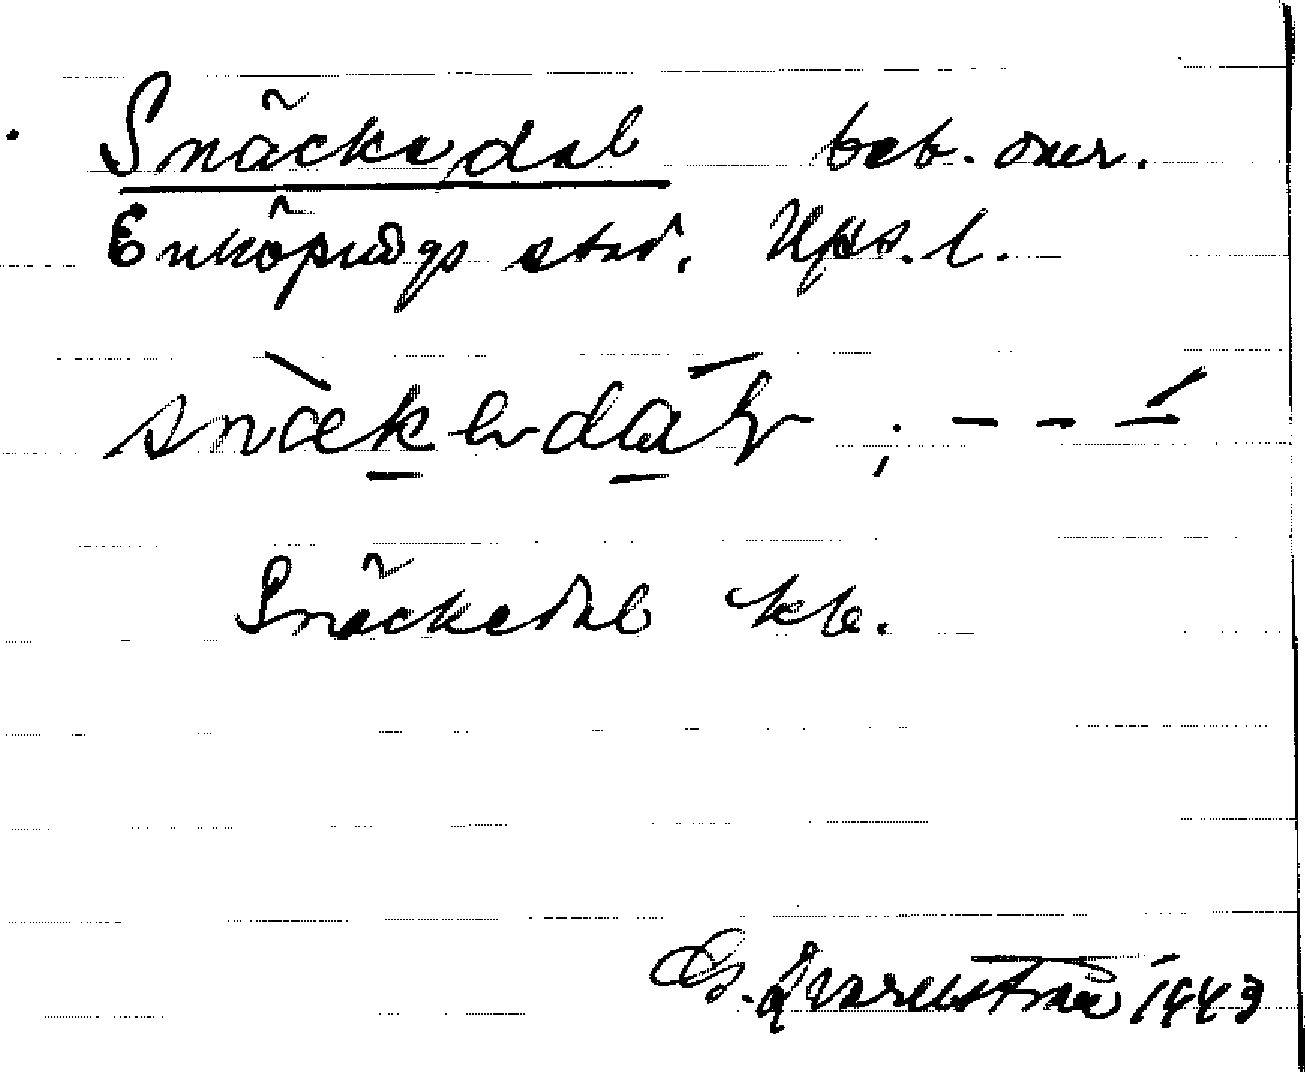 Snäckedal beb. omr.
Enköpings stad. Upps. l.
snäkedal ; – – –́
Snäckedal kb.
G. Qvarnström 1943